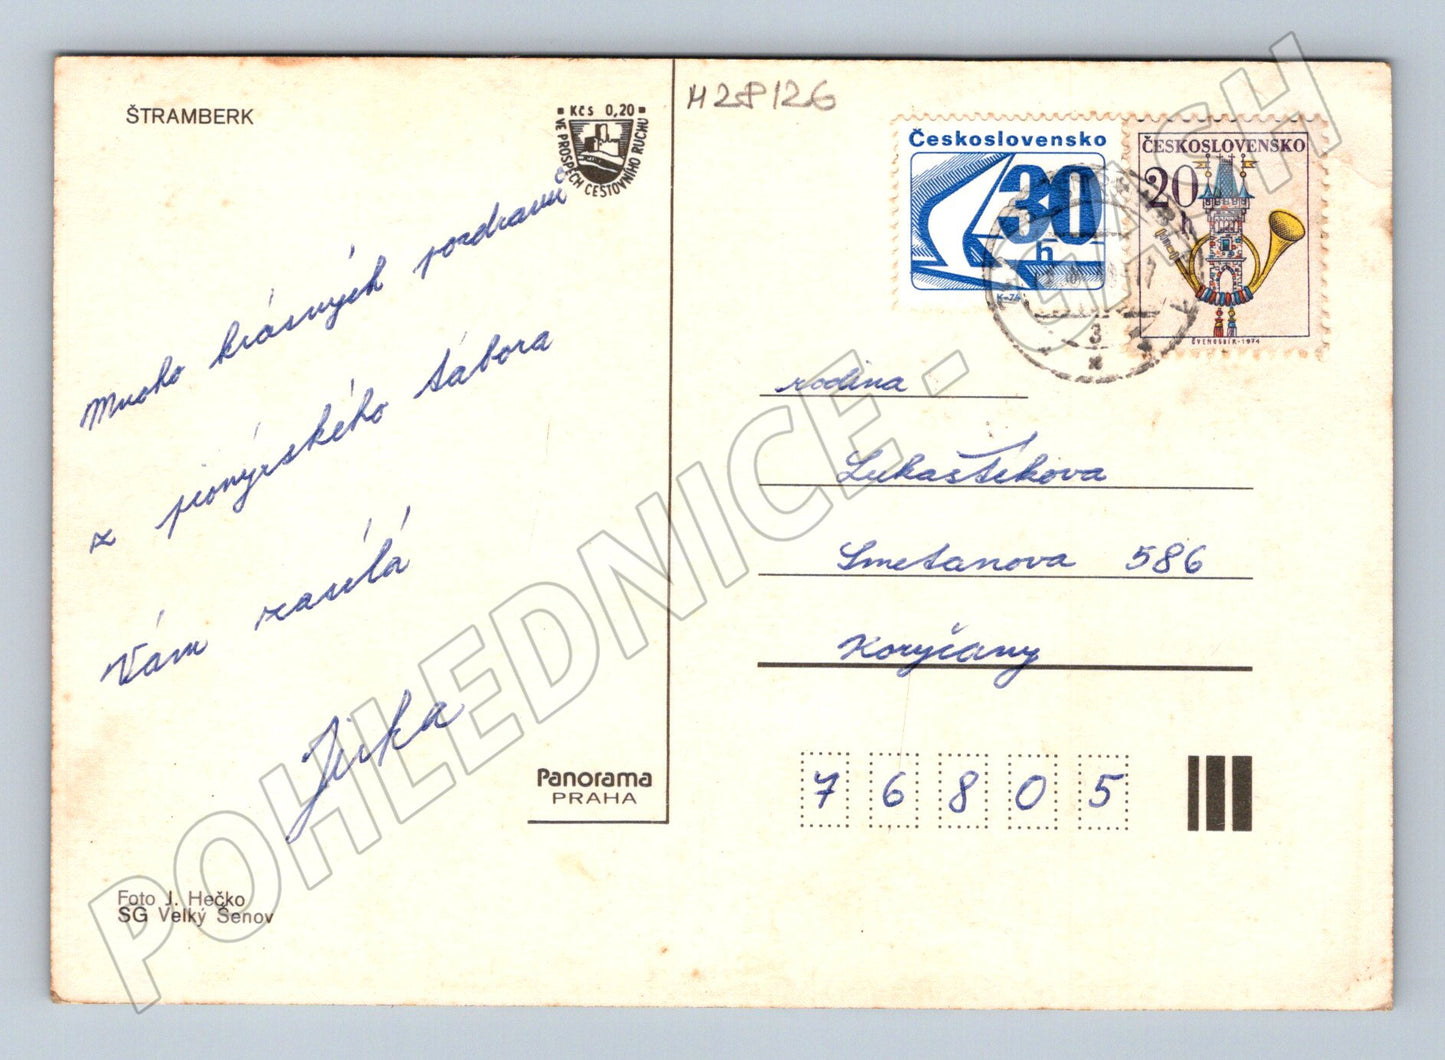 ŠTRAMBERK
Kčs 0,20
VE PROSPĚCH CESTOVNÍHO RUCHU
Mnoho krásných pozdravů
z pionýrského tábora
Vám zasílá
Jirka
Panorama
PRAHA
Foto J. Hečko
SG Velký Šenov
H28126
Československo
30
h
ČESKOSLOVENSKO
20
h
ŠVENGSBÍR-1974
3
rodina
Lukaštíkova
Smetanova 586
Koryčany
7 6 8 0 5
POHLEDNICE - CASH